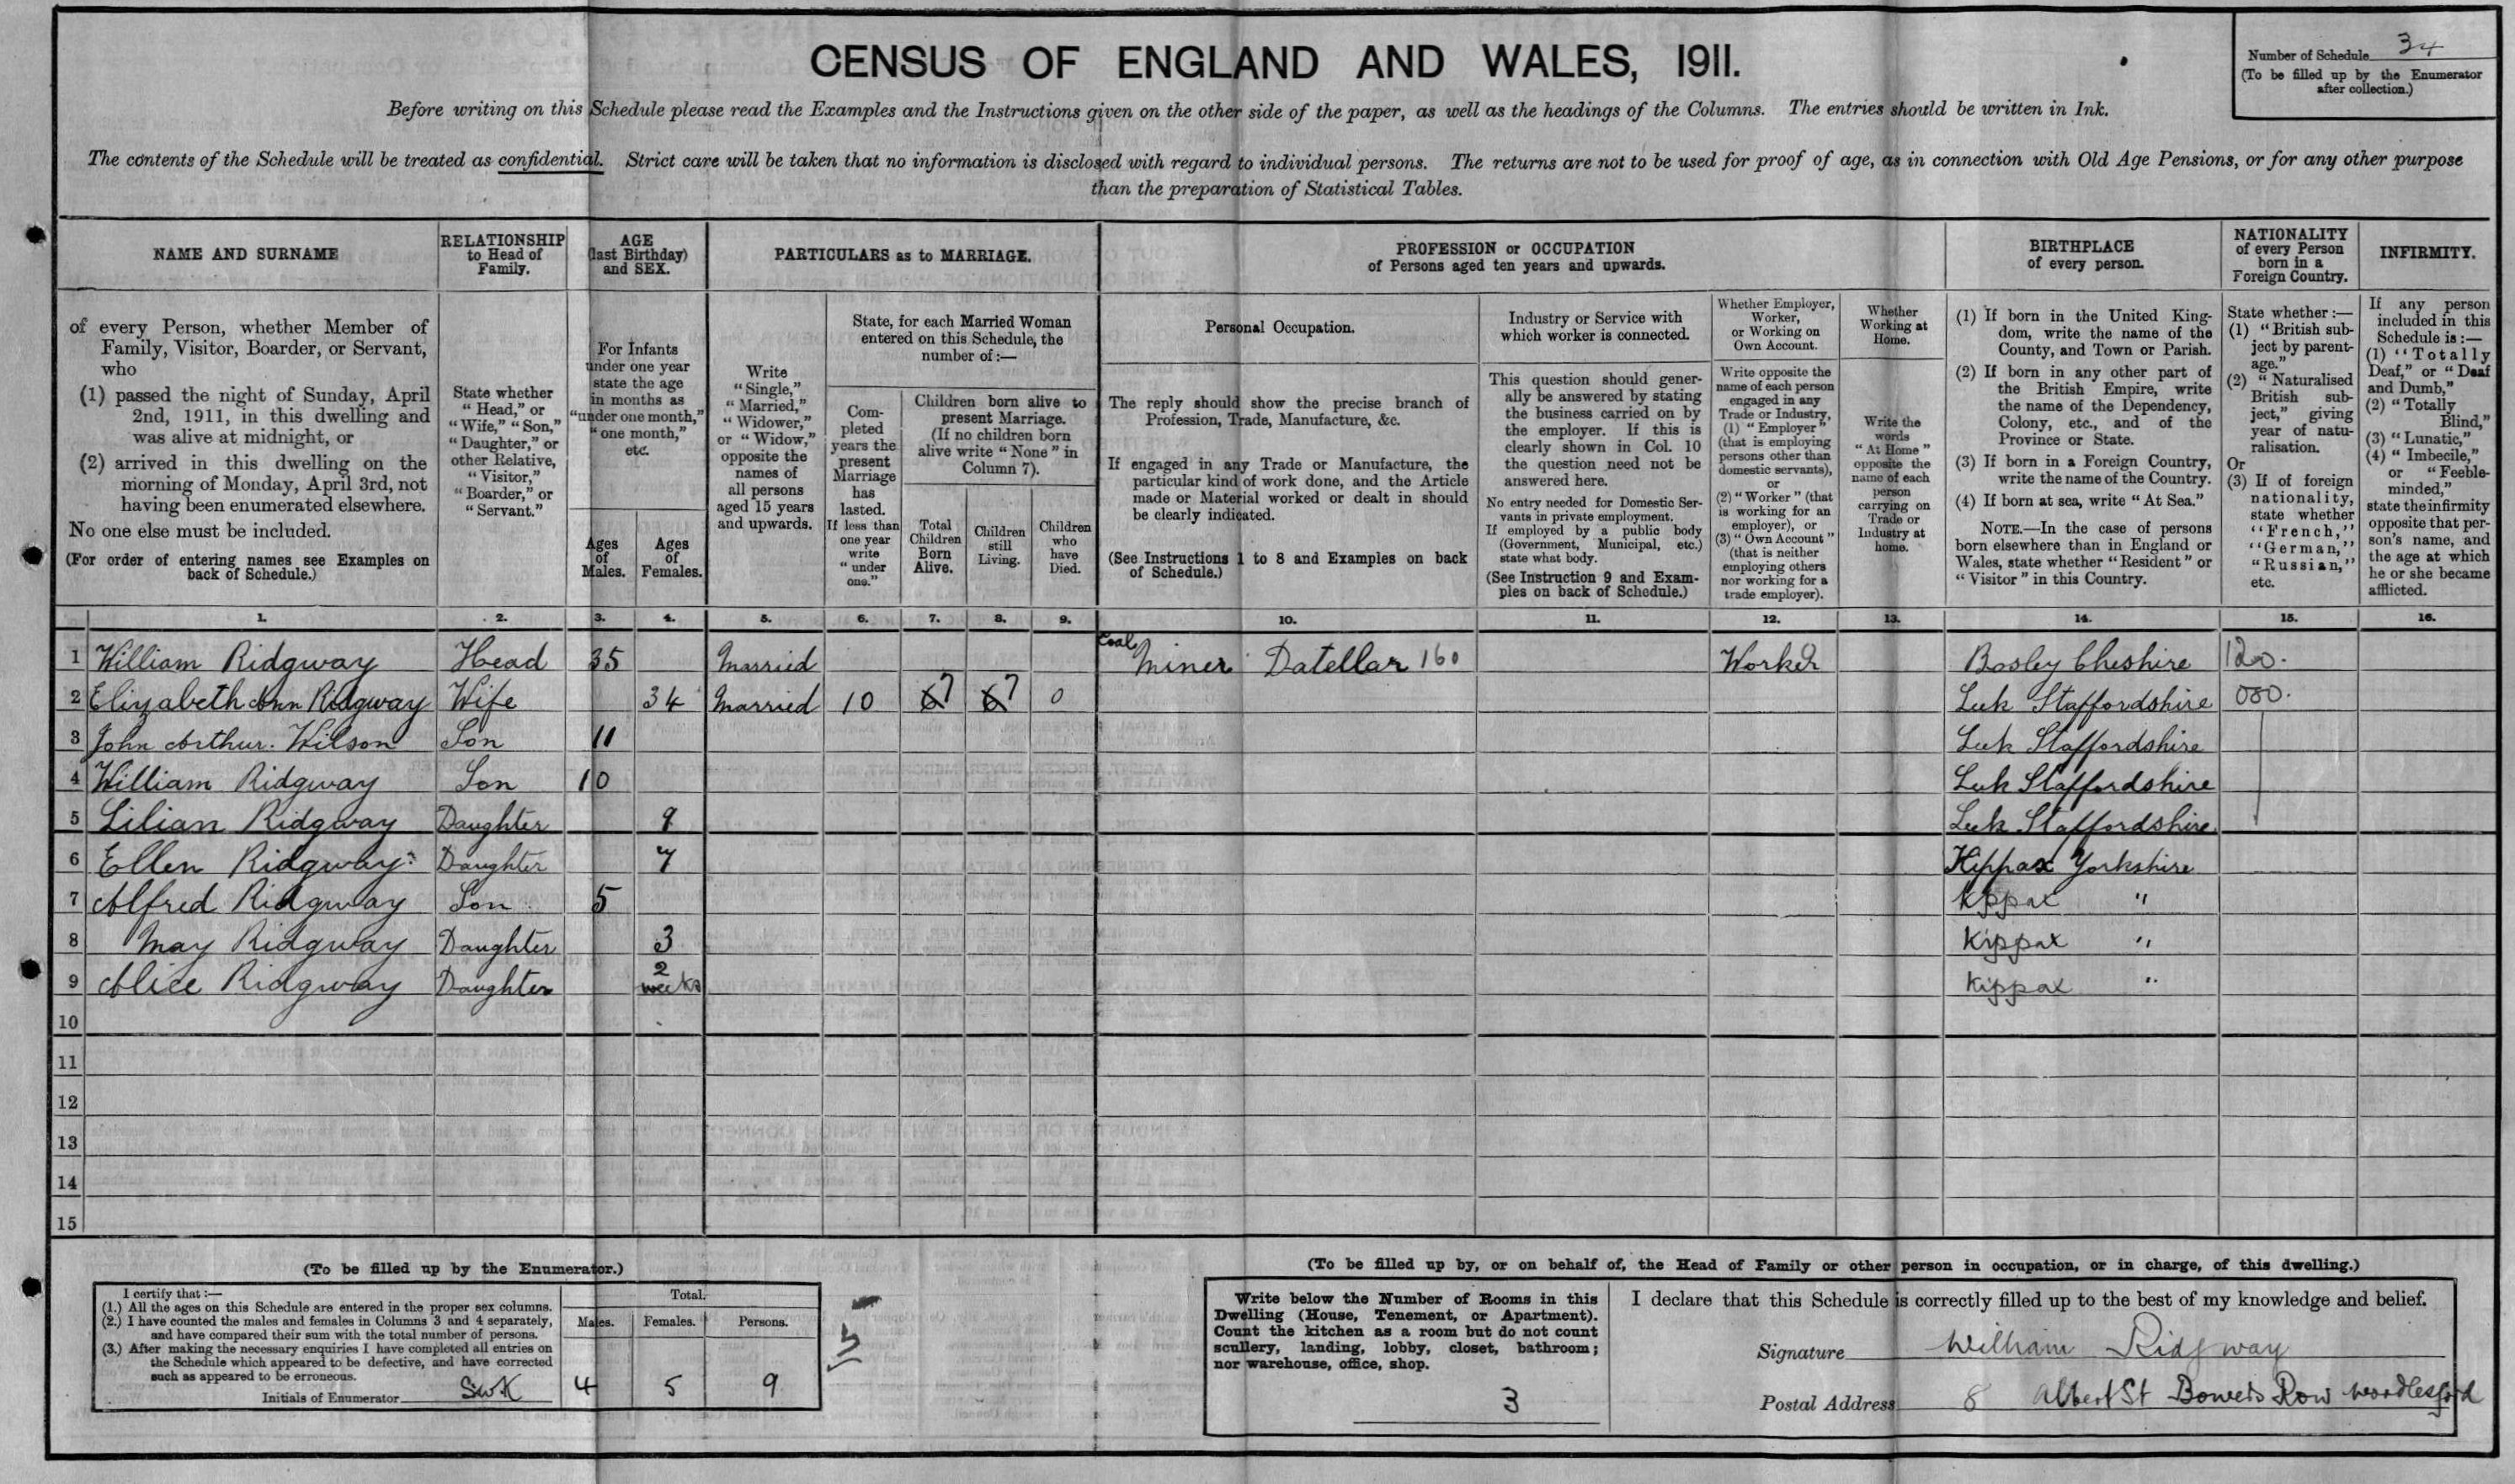 CENSUS OF ENGLAND AND WALES, 1911.
Number of Schedule 34
(To be filled up by the Enumerator
after collection.)
Before writing on this Schedule please read the Examples and the Instructions given on the other side of the paper, as well as the headings of the Columns. The entries should be written in Ink.
The contents of the Schedule will be treated as confidential. Strict care will be taken that no information is disclosed with regard to individual persons. The returns are not to be used for proof of age, as in connection with Old Age Pensions, or for any other purpose
than the preparation of Statistical Tables.
NAME AND SURNAME
of every Person, whether Member of
Family, Visitor, Boarder, or Servant,
who
(1) passed the night of Sunday, April
2nd, 1911, in this dwelling and
was alive at midnight, or
(2) arrived in this dwelling on the
morning of Monday, April 3rd, not
having been enumerated elsewhere.
No one else must be included.
(For order of entering names see Examples on
back of Schedule.)
RELATIONSHIP
to Head of
Family.
State whether
"Head," or
"Wife," "Son,"
"Daughter," or
other Relative,
"Visitor,"
"Boarder," or
"Servant."
AGE
(last Birthday)
and SEX.
For Infants
under one year
state the age
in months as
"under one month,"
"one month,"
etc.
Ages
of
Males.
Ages
of
Females.
PARTICULARS as to MARRIAGE.
Write
"Single,"
"Married,"
"Widower,"
or "Widow,"
opposite the
names of
all persons
aged 15 years
and upwards.
State, for each Married Woman
entered on this Schedule, the
number of:—
Com-
pleted
years the
present
Marriage
has
lasted.
If less than
one year
write
"under
one."
Children born alive to
present Marriage.
(If no children born
alive write "None" in
Column 7).
Total
Children
Born
Alive.
Children
still
Living.
Children
who
have
Died.
PROFESSION or OCCUPATION
of Persons aged ten years and upwards.
Personal Occupation.
The reply should show the precise branch of
Profession, Trade, Manufacture, &c.
If engaged in any Trade or Manufacture, the
particular kind of work done, and the Article
made or Material worked or dealt in should
be clearly indicated.
(See Instructions 1 to 8 and Examples on back
of Schedule.)
Industry or Service with
which worker is connected.
This question should gener-
ally be answered by stating
the business carried on by
the employer. If this is
clearly shown in Col. 10
the question need not be
answered here.
No entry needed for Domestic Ser-
vants in private employment.
If employed by a public body
(Government, Municipal, etc.)
state what body.
(See Instruction 9 and Exam-
ples on back of Schedule.)
Whether Employer,
Worker,
or Working on
Own Account.
Write opposite the
name of each person
engaged in any
Trade or Industry,
(1) "Employer"
(that is employing
persons other than
domestic servants),
or
(2) "Worker" (that
is working for an
employer), or
(3) "Own Account"
(that is neither
employing others
nor working for a
trade employer).
Whether
Working at
Home.
Write the
words
"At Home"
opposite the
name of each
person
carrying on
Trade or
Industry at
home.
BIRTHPLACE
of every person.
(1) If born in the United King-
dom, write the name of the
County, and Town or Parish.
(2) If born in any other part of
the British Empire, write
the name of the Dependency,
Colony, etc., and of the
Province or State.
(3) If born in a Foreign Country,
write the name of the Country.
(4) If born at sea, write "At Sea."
NOTE.—In the case of persons
born elsewhere than in England or
Wales, state whether "Resident" or
"Visitor" in this Country.
NATIONALITY
of every Person
born in a
Foreign Country.
State whether :—
(1) "British sub-
ject by parent-
age."
(2) "Naturalised
British sub-
ject," giving
year of natu-
ralisation.
Or
(3) If of foreign
nationality,
state whether
"French,"
"German,"
"Russian,"
etc.
INFIRMITY.
If any person
included in this
Schedule is :—
(1) "Totally
Deaf," or "Deaf
and Dumb,"
(2) "Totally
Blind,"
(3) "Lunatic,"
(4) "Imbecile,"
or "Feeble-
minded,"
state the infirmity
opposite that per-
son's name, and
the age at which
he or she became
afflicted.
1. 2. 3. 4. 5. 6. 7. 8. 9. 10. 11. 12. 13. 14. 15. 16.
1 William Ridgway Head 35 Married Coal Miner Datellar 160 Worker Bosley Cheshire 120.
2 Elizabeth Ann Ridgway Wife 34 Married 10 7 7 0 Leek Staffordshire 080.
3 John Arthur. Wilson Son 11 Leek Staffordshire
4 William Ridgway Son 10 Leek Staffordshire
5 Lilian Ridgway Daughter 9 Leek Staffordshire
6 Ellen Ridgway Daughter 7 Kippax Yorkshire
7 Alfred Ridgway Son 5 Kippax "
8 May Ridgway Daughter 3 Kippax "
9 Alice Ridgway Daughter 2 weeks Kippax "
10
11
12
13
14
15
(To be filled up by the Enumerator.)
I certify that :—
(1.) All the ages on this Schedule are entered in the proper sex columns.
(2.) I have counted the males and females in Columns 3 and 4 separately,
and have compared their sum with the total number of persons.
(3.) After making the necessary enquiries I have completed all entries on
the Schedule which appeared to be defective, and have corrected
such as appeared to be erroneous.
Initials of Enumerator SWK
Total.
Males. Females. Persons.
4 5 9
(To be filled up by, or on behalf of, the Head of Family or other person in occupation, or in charge, of this dwelling.)
Write below the Number of Rooms in this
Dwelling (House, Tenement, or Apartment).
Count the kitchen as a room but do not count
scullery, landing, lobby, closet, bathroom;
nor warehouse, office, shop.
3
I declare that this Schedule is correctly filled up to the best of my knowledge and belief.
Signature William Ridgway
Postal Address 8 Albert St Bowers Row Woodlesford